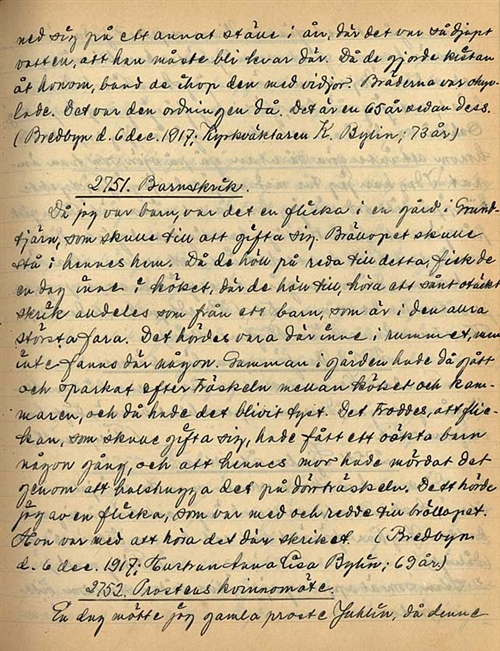 ned sig på ett annat ställe i ån, där det var så djupt
vatten, att han måste bli kvar där. Då de gjorde kistan
åt honom, band de ihop den med vidjor. Bräderna var ohyv-
lade. Det var den ordningen då. Det är en 65 år sedan dess.
(Bredbyn d. 6 dec. 1917; Kyrkväktaren K. Bylin; 73 år)
2751. Barnskrik.
Då jag var barn, var det en flicka i en gård i Grund-
tjärn, som skulle till att gifta sig. Bröllopet skulle
stå i hennes hem. Då de höll på reda till detta, fick de
en dag inne i köket, där de höll till, höra ett sånt otäckt
skrik alldeles som från ett barn, som är i den allra
största fara. Det hördes vara där inne i rummet, men
inte fanns där någon. Gumman i gården hade då gått
och sparkat efter träskeln mellan köket och kam-
maren, och då hade det blivit tyst. Det troddes, att flic-
kan, som skulle gifta sig, hade fått ett oäkta barn
någon gång, och att hennes mor hade mördat det
genom att halshugga det på dörrträskeln. Detta hörde
jag av en flicka, som var med och redde till bröllopet.
Hon var med att höra det där skriket. (Bredbyn
d. 6 dec. 1917; Hustrun Anna Lisa Bylin; 69 år.)
2752. Prostens kvinnomöte.
En dag mötte jag gamla proste Juhlin, då denne